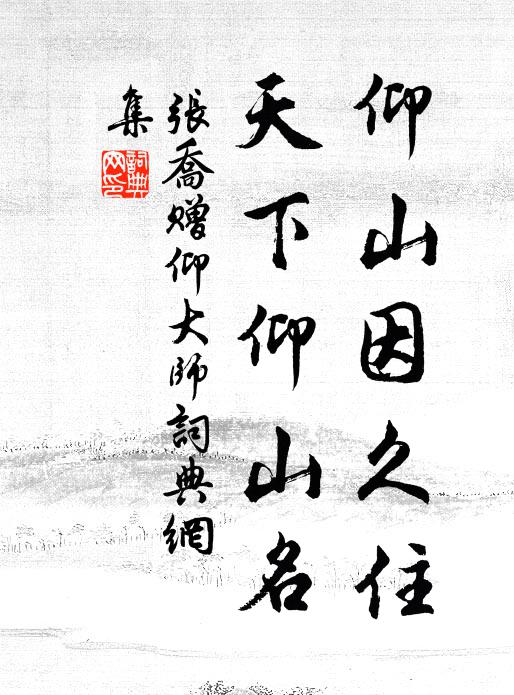 仰山因久住
天下仰山名
張喬贈仰大师詞典網
集
詞典
网印